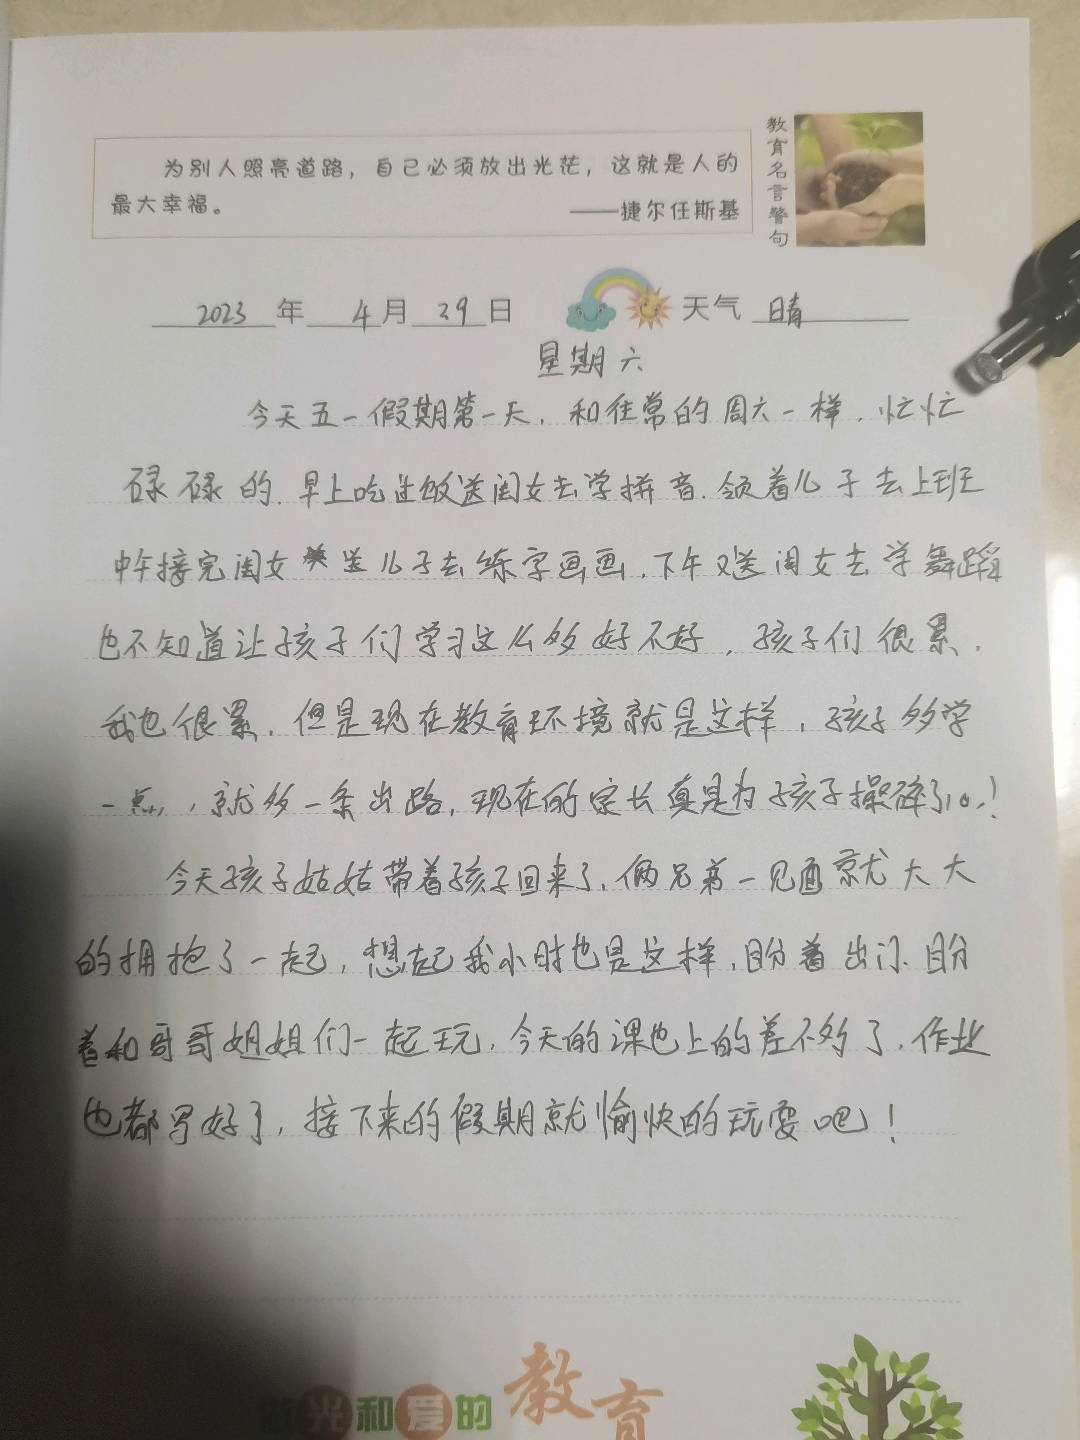 为别人照亮道路，自己必须放出光茫，这就是人的
最大幸福。 ——捷尔任斯基
教育名言警句
2023年4月29日 天气 晴
星期六
今天五一假期第一天，和往常的周六一样，忙忙
碌碌的.早上吃过饭送闺女去学拼音.领着儿子去上班
中午接完闺女送儿子去练字画画.下午又送闺女去学舞蹈
也不知道让孩子们学习这么多好不好，孩子们很累.
我也很累.但是现在教育环境就是这样，孩子多学
一点，就多一条出路.现在的家长真是为孩子操碎了心！
今天孩子姑姑带着孩子回来了.俩兄弟一见面就大大
的拥抱了一起，想起我小时也是这样，盼着出门.盼
着和哥哥姐姐们一起玩，今天的课也上的差不多了.作业
也都写好了，接下来的假期就愉快的玩耍吧！
光和爱的教育